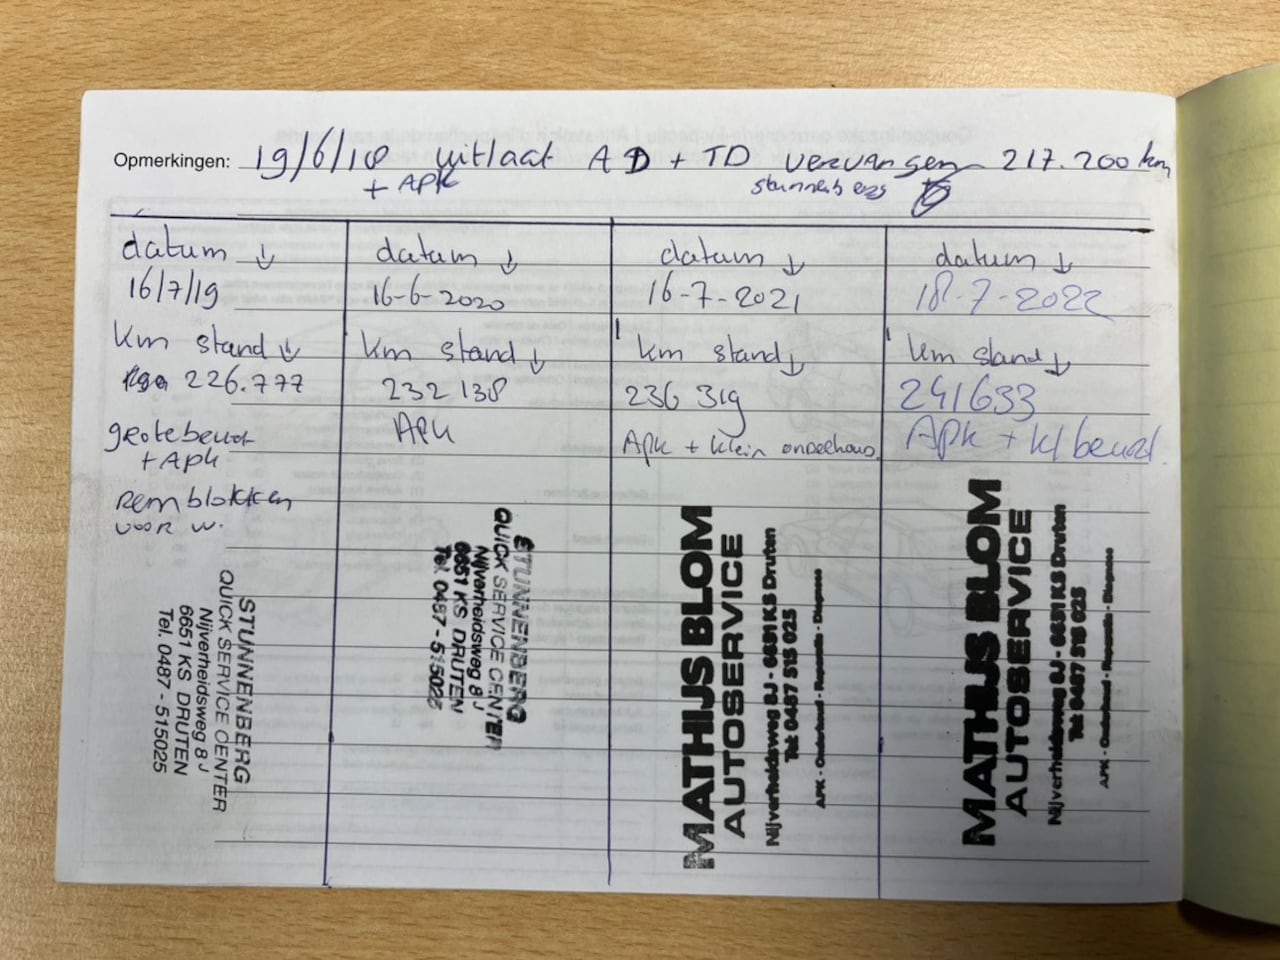 Opmerkingen: 19/6/18 uitlaat AD + TD vervangen 217.200 km
+ APK stunnenberg
datum ↓
16/7/19
km stand ↓
226.777
grote beurt
+ APK
remblokken
voor w.
STUNNENBERG
QUICK SERVICE CENTER
Nijverheidsweg 8 J
6651 KS DRUTEN
Tel. 0487 - 515025
datum ↓
16-6-2020
km stand ↓
232 138
APK
STUNNENBERG
QUICK SERVICE CENTER
Nijverheidsweg 8 J
6651 KS DRUTEN
Tel. 0487 - 515025
datum ↓
16-7-2021
km stand ↓
236 319
Apk + klein onderhoud
MATHIJS BLOM
AUTOSERVICE
Nijverheidsweg 8J - 6651 KS Druten
Tel: 0487 515 025
APK - Onderhoud - Reparatie - Diagnose
datum ↓
18-7-2022
km stand ↓
241633
Apk + kl beurt
MATHIJS BLOM
AUTOSERVICE
Nijverheidsweg 8J - 6651 KS Druten
Tel: 0487 515 025
APK - Onderhoud - Reparatie - Diagnose